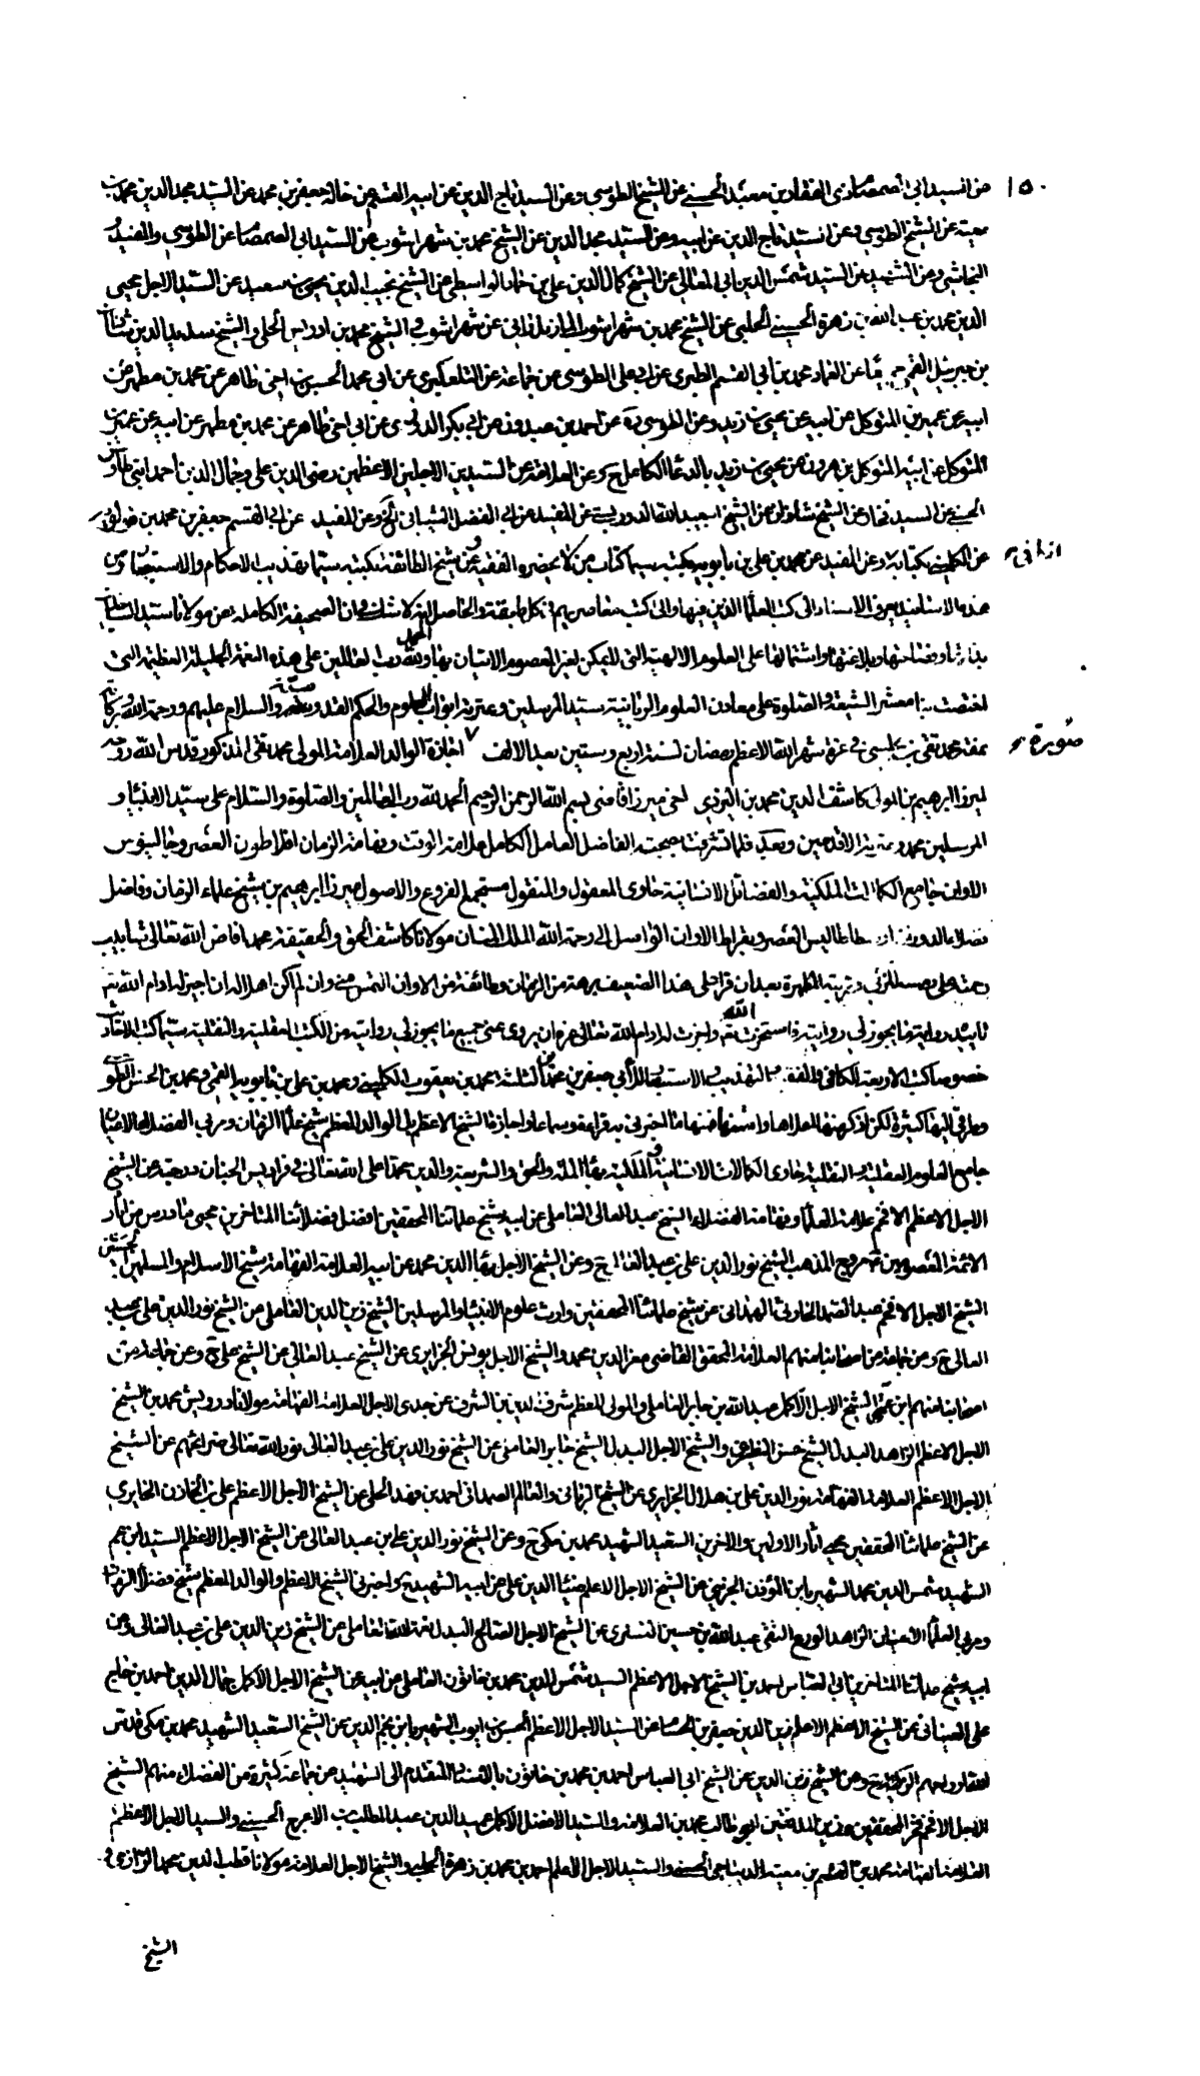 ١٥٠
عن السيد ابي الصمصام ذي الفقار بن معبد الحسني عن الشيخ الطوسي وعن السيد تاج الدين عن ابيه القسم عن خاله جعفر بن محمد عن السيد مجد الدين محمد بن
معية عن الشيخ الطوسي وعن السيد تاج الدين عن ابيه وعن السيد مجد الدين عن الشيخ محمد بن شهراشوب عن السيد ابي الصمصام عن الطوسي والمفيد
النجاشي وعن الشهيد عن السيد شمس الدين ابي المعالي عن الشيخ كمال الدين علي بن حماد الواسطي عن الشيخ نجيب الدين يحيى بن سعيد عن السيد الاجل محيي
الدين محمد بن عبد الله بن زهرة الحسيني الحلبي عن الشيخ محمد بن شهراشوب المازندراني عن شهراشوب والشيخ محمد بن ادريس الحلي والشيخ سديد الدين شاذان
بن جبرئيل القمي عن العماد محمد بن ابي القسم الطبري عن ابي علي الطوسي عن جماعة عن التلعكبري عن ابي محمد الحسن بن اخي طاهر عن محمد بن مطهر عن
ابيه عن عمير بن المتوكل عن ابيه عن يحيى بن زيد وعن الطوسي ره عن احمد بن عبدون عن ابي بكر الدوري عن ابن اخي طاهر عن محمد بن مطهر عن ابيه عن عمير بن
المتوكل عن ابيه المتوكل بن هرون عن يحيى بن زيد بالدعاء الكامل ح وعن العلامة عن السيدين الاجلين الاعظمين رضي الدين علي وجمال الدين احمد ابني طاوس
الحسني عن السيد فخار عن الشيخ شاذان عن الشيخ ابي عبد الله الدوريستي عن المفيد عن ابي المفضل الشيباني الخ وعن المفيد عن ابي القسم جعفر بن محمد بن قولويه
عن الكليني بكتابه وعن المفيد عن محمد بن علي بن بابويه بكتبه سيما كتاب من لا يحضره الفقيه وعن شيخ الطائفة بكتبه سيما تهذيب الاحكام والاستبصار ومن
هذه الاسانيد يعرف الاسناد الى كتب العلماء الذين فيها والى كتب معاصريهم بكل طبقة والحاصل انه لا شك في ان الصحيفة الكاملة عن مولانا سيد الساجدين
بذاتها وفصاحتها وبلاغتها واشتمالها على العلوم الالهية التي لا يمكن لغير المعصوم الاتيان بها والحمد لله رب العالمين على هذه النعمة الجليلة العظيمة التي
اختصت بنا معشر الشيعة والصلوة على معادن العلوم الربانية سيد المرسلين وعترته ابواب العلوم والحكم القدوسية والسلام عليهم ورحمة الله وبركاته
نمقه محمد تقي بن مجلسي في غرة شهر الله الاعظم رمضان لسنة اربع وستين بعد الالف ٧ اجازة الوالد العلامة المولى محمد تقي المذكور قدس الله روحه
صورة
لميرزا ابرهيم بن المولى كاشف الدين محمد بن اليزدي اعني ميرزا قاضي بسم الله الرحمن الرحيم الحمد لله رب العالمين والصلوة والسلام على سيد الانبياء و
المرسلين محمد وعترته الاقدمين وبعد فلما تشرفت بصحبة الفاضل العامل الكامل علامة الوقت وفهامة الزمان افلاطون العصر وجالينوس
الاوان جامع الكمالات الملكية والفضائل الانسانية حاوي المعقول والمنقول مستجمع الفروع والاصول ميرزا ابرهيم بن شيخ علماء الزمان وفاضل
فضلاء الدوران ارسطاطاليس العصر وبقراط الاوان الواصل الى رحمة الله الملك المنان مولانا كاشف الحق والحقيقة محمد افاض الله تعالى شآبيب
رحمته على رمسه الزكي وتربته المطهرة بعد ان قرأ على هذا الضعيف برهة من الزمان وطائفة من الاوان التمس مني وان لم اكن اهلا لذلك ان اجيز له ادام الله
تاييده رواية ما يجوز لي روايته فاستخرت الله واجزت له ادام الله تعالى عزه ان يروي عني جميع ما يجوز لي روايته من الكتب العقلية والنقلية سيما كتب الاخبار
خصوصا كتب الاربعة الكافي والفقيه والتهذيب والاستبصار لابي جعفرين المحمدين الثلثة محمد بن يعقوب الكليني ومحمد بن علي بن بابويه القمي ومحمد بن الحسن الطوسي
وطرقي اليها كثيرة لكن اذكر منها اعلاها واشرفها فمنها ما اخبرني به قراءة وسماعا واجازة الشيخ الاعظم بل الوالد المعظم شيخ علماء الزمان ومربي الفضلاء الاعيان
جامع العلوم العقلية والنقلية حاوي الكمالات الانسانية والملكية بهاء الملة والحق والشريعة والدين محمد اعلى الله تعالى في فراديس الجنان درجته عن الشيخ
الاجل الاعظم الافخم علامة العلماء وفهامة الفضلاء الشيخ عبد العالي العاملي عن ابيه شيخ علمائنا المحققين افضل فضلائنا المتاخرين محيي ما درس من آثار
الائمة المعصومين مروج المذهب الشيخ نور الدين علي بن عبد العالي ح وعن الشيخ الاجل بهاء الدين محمد عن ابيه العلامة الفهامة شيخ الاسلام والمسلمين حسين بن
الشيخ الاجل الافخم عبد الصمد الحارثي الهمداني عن شيخ علمائنا المحققين وارث علوم الانبياء والمرسلين الشيخ زين الدين العاملي عن الشيخ نور الدين علي بن عبد
العالي ح وعن جماعة من اصحابنا منهم العلامة المحقق القاضي معز الدين محمد والشيخ الاجل يونس الجزايري عن الشيخ عبد العالي عن الشيخ علي ح وعن جماعة من
اصحابنا منهم ابن عمتي الشيخ الاجل الاكمل عبد الله بن جابر العاملي والمولى المعظم شرف الدين الشريف عن جدي الاجل العلامة الفهامة مولانا درويش محمد بن الشيخ
الاجل الاعظم الزاهد البدل الشيخ حسن النطنزي والشيخ الاجل البدل الشيخ جابر العاملي عن الشيخ نور الدين علي بن عبد العالي نور الله تعالى ضرائحهم عن الشيخ
الاجل الاعظم العلامة الفهامة نور الدين علي بن هلال الجزايري عن الشيخ الرباني والعالم الصمداني احمد بن فهد الحلي عن الشيخ الاجل الاعظم علي بن الخازن الحايري
عن الشيخ علمائنا المحققين محيي آثار الاولين والاخرين السعيد الشهيد محمد بن مكي ح وعن الشيخ نور الدين علي بن عبد العالي عن الشيخ الاجل الاعظم السيد ابن عم
الشهيد شمس الدين محمد الشهير بابن المؤذن الجزيني عن الشيخ الاجل الاعلم ضياء الدين علي عن ابيه الشهيد ح واخبرني الشيخ الاعظم والوالد المعظم شيخ فضلاء الزمان
ومربي العلماء الاعيان الزاهد الورع التقي عبد الله بن حسين التستري عن الشيخ الاجل الصالح البدل نعمة الله العاملي عن الشيخ زين الدين علي بن عبد العالي وعن
ابيه شيخ علمائنا المتاخرين ابي العباس احمد بن الشيخ الاجل الاعظم السيد شمس الدين محمد بن خاتون العاملي عن ابيه عن الشيخ الاجل الاكمل جمال الدين احمد بن حاج
علي العيناثي عن الشيخ الاعظم الاعلم زين الدين جعفر بن الحسام عن السيد الاجل الاعظم الحسن بن ايوب الشهير بابن نجم الدين عن الشيخ السعيد الشهيد محمد بن مكي قدس
الله ارواحهم الزكية ح وعن الشيخ زين الدين عن الشيخ ابي العباس احمد بن محمد بن خاتون بالاسناد المتقدم الى الشهيد عن جماعة كثيرة من الفضلاء منهم الشيخ
الاجل الافخم فخر المحققين وعز المدققين ابو طالب محمد بن العلامة والسيد الافضل الاكمل عميد الدين عبد المطلب بن الاعرج الحسيني والسيد الاجل الاعظم
العلامة الفهامة محمد بن القسم بن معية الديباجي الحسني والسيد الاجل الاعلم احمد بن محمد بن زهرة الحلبي والشيخ الاجل العلامة مولانا قطب الدين محمد الرازي
الشيخ